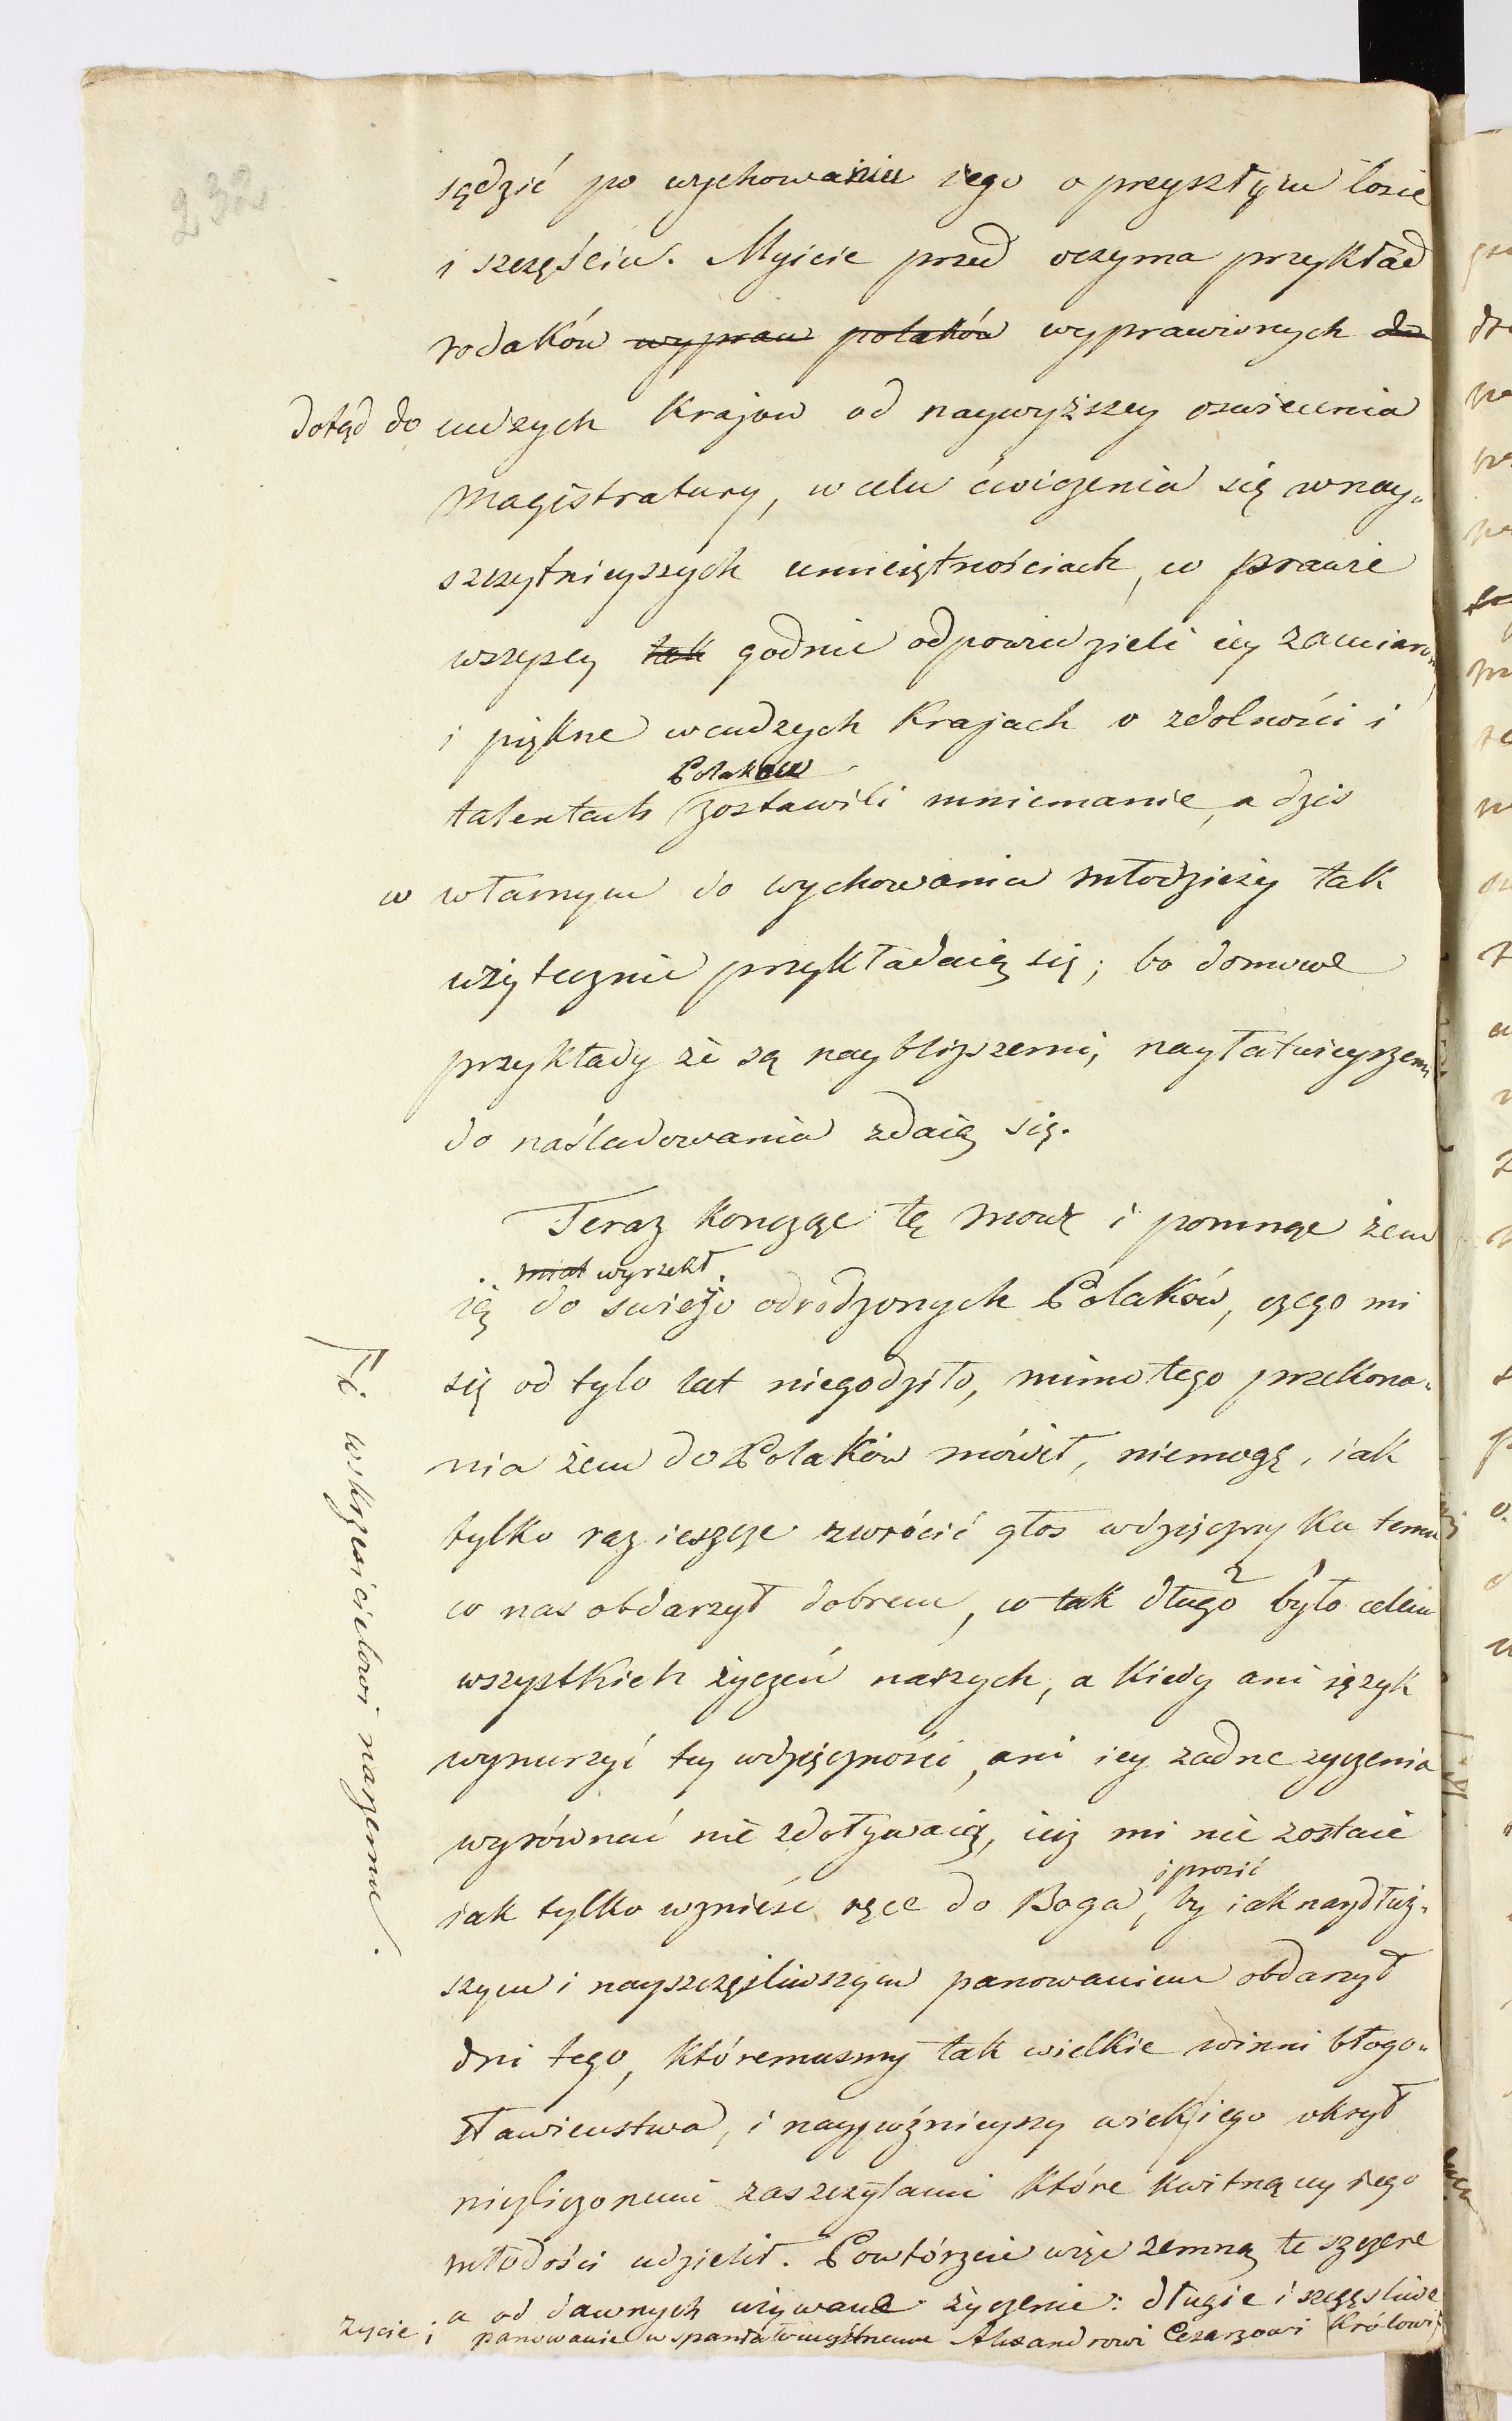 232
sądzić po wychowaniu iego o przyszłym losie
i szczęściu. Myicie przed oczyma przykład
rodaków wypraw polaków wyprawionych do
dotąd do cudzych Krajow od naywyższey oswiecenia
magistratury, w celu ćwiczenia się w nay„
szczytnieyszych umieiętnościach, co prawie
wszyscy tak godnie odpowiedzieli iey zamiarom,
i piękne w cudzych Krajach o zdolności i
Polakow
talentach zostawili mniemanie, a dzis
w własnym do wychowania młodzieży tak
użytecznie przykładaią się; bo domowe
przykłady że są naybliższemi, nayłatwieyszemi
do naśladowania zdaią się.
Teraz kończąc tę mowę i pomnąc żem
miał wyrzekł
ią do swieżo odrodzonych Polaków, czego mi
się od tylo lat niegodziło, mimo tego przekona„
nia żem do Polaków mówił, niemogę, iak
tylko raz ieszcze zwrócić głos wdzięczny ku temu
co nas obdarzył dobrem, co tak długo było celem
wszystkich życzeń naszych, a kiedy ani ięzyk
wynurzyć tey wdzięczności, ani iey żadne zyczenia
wyrównać nie zdoływaią, iuż mi nie zostaie
i prosić
iak tylko wznieść ręce do Boga, by iak naydłuż„
szym i nayszczęśliwszym panowaniem obdarzył
dni tego, któremusmy tak wielkie winni błogo„
sławieństwa, i naypóźnieyszy wiek iego okrył
niezliczonemi zaszczytami które kwitnący iego
młodości udzielił. Powtórzcie więc zemną te szczere
a od dawnych używane życzenie: długie i szczęsliwe
Zycie i panowanie wspaniałomyślnemu Alexandrowi Cesarzowi Królowi
i wskrzesicielowi naszemu.